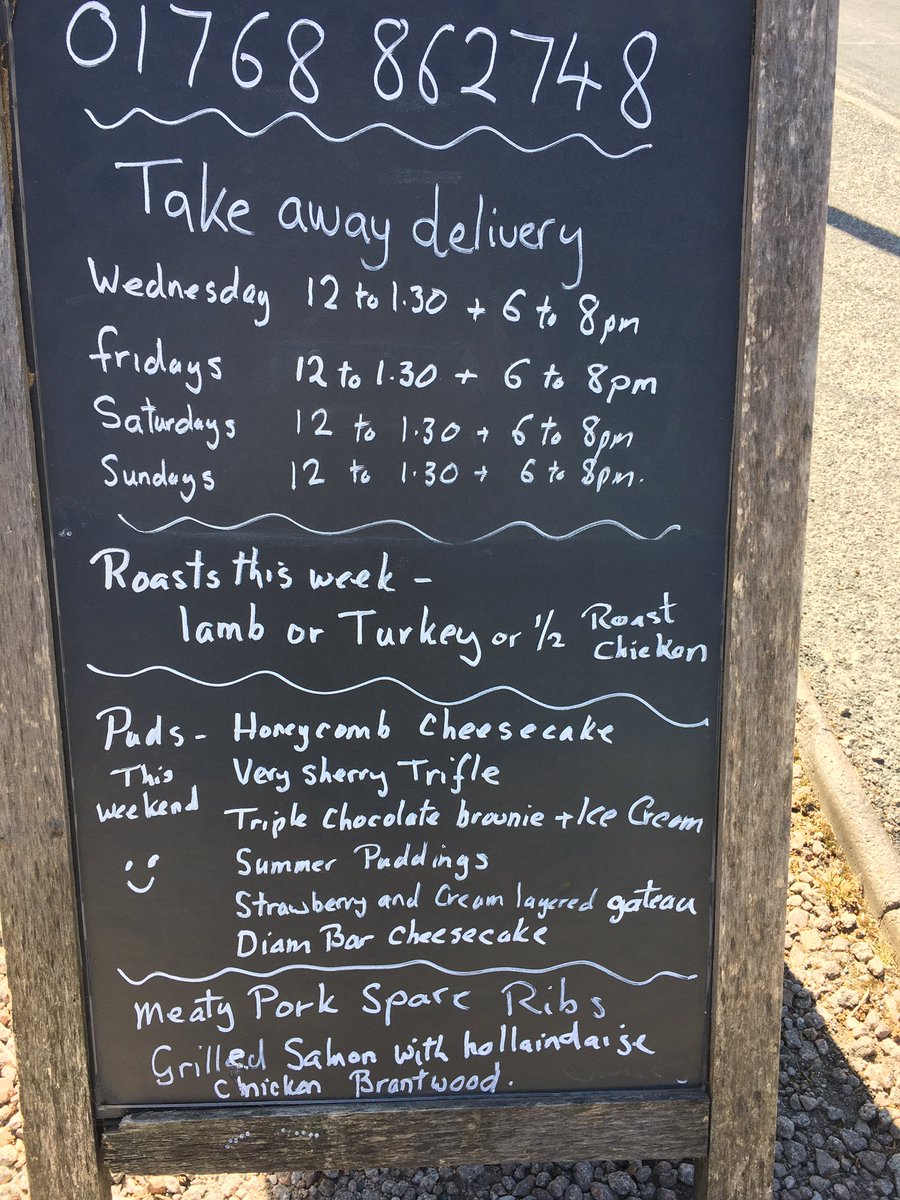 01768 862748
Take away delivery
Wednesday 12 to 1.30 + 6 to 8pm
fridays 12 to 1.30 + 6 to 8pm
Saturdays 12 to 1.30 + 6 to 8pm
Sundays 12 to 1.30 + 6 to 8pm.
Roasts this week -
lamb or Turkey or 1/2 Roast Chicken
Puds - Honeycomb Cheesecake
This weekend Very Sherry Trifle
Triple Chocolate brownie + Ice Cream
Summer Puddings
Strawberry and Cream layered gateau
Diam Bar Cheesecake
Meaty Pork Spare Ribs
Grilled Salmon with hollaindaise
Chicken Brantwood.